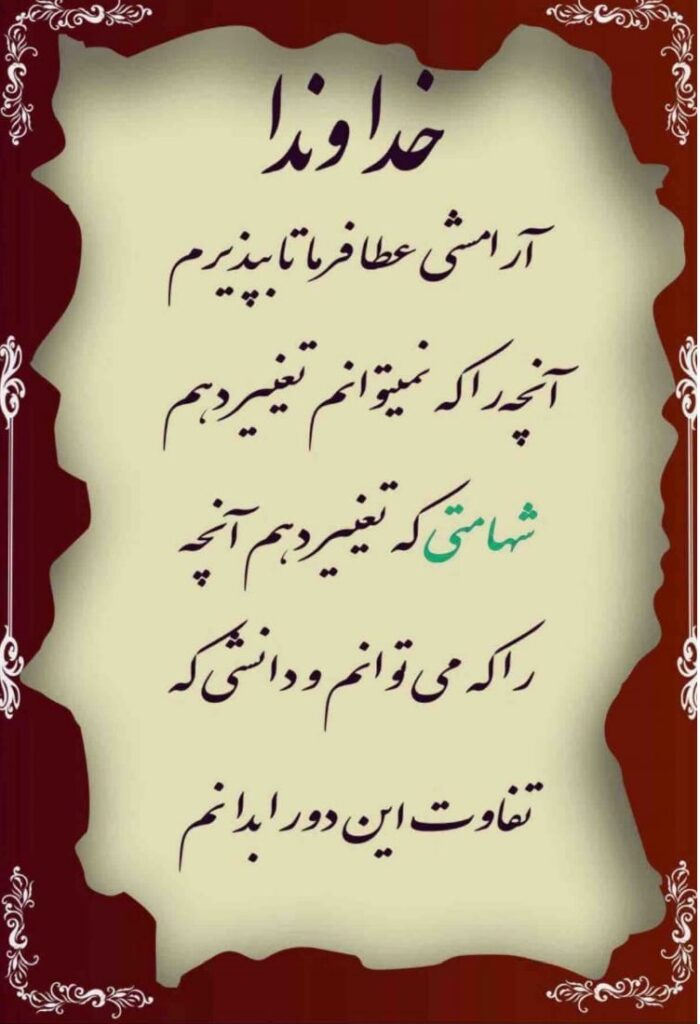 خداوندا
آرامشی عطا فرما تا بپذیرم
آنچه را که نمیتوانم تغییر دهم
شهامتی که تغییر دهم آنچه
را که می توانم و دانشی که
تفاوت این دو را بدانم